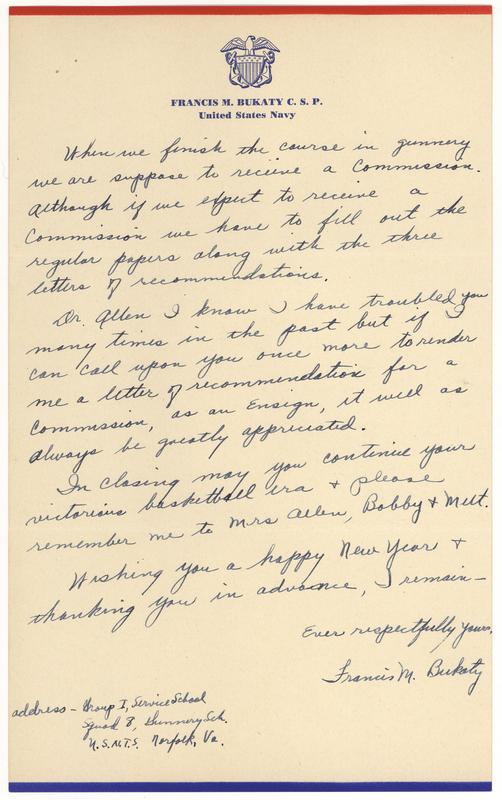 FRANCIS M. BUKATY C. S. P.
United States Navy
When we finish the course in gunnery
we are suppose to receive a Commission.
Although if we expect to receive a
Commission we have to fill out the
regular papers along with the three
letters of recommendations.
Dr. Allen I know I have troubled you
many times in the past but if I
can call upon you once more to render
me a letter of recommendation for a
Commission, as an Ensign, it will as
always be greatly appreciated.
In closing may you continue your
victorious basketball era + please
remember me to Mrs Allen, Bobby + Mitt.
Wishing you a happy New Year +
thanking you in advance, I remain —
Ever respectfully yours,
Francis M. Bukaty
address — Group I, Service School
Squad 8, Gunnery Sch.
U.S.N.T.S. Norfolk, Va.